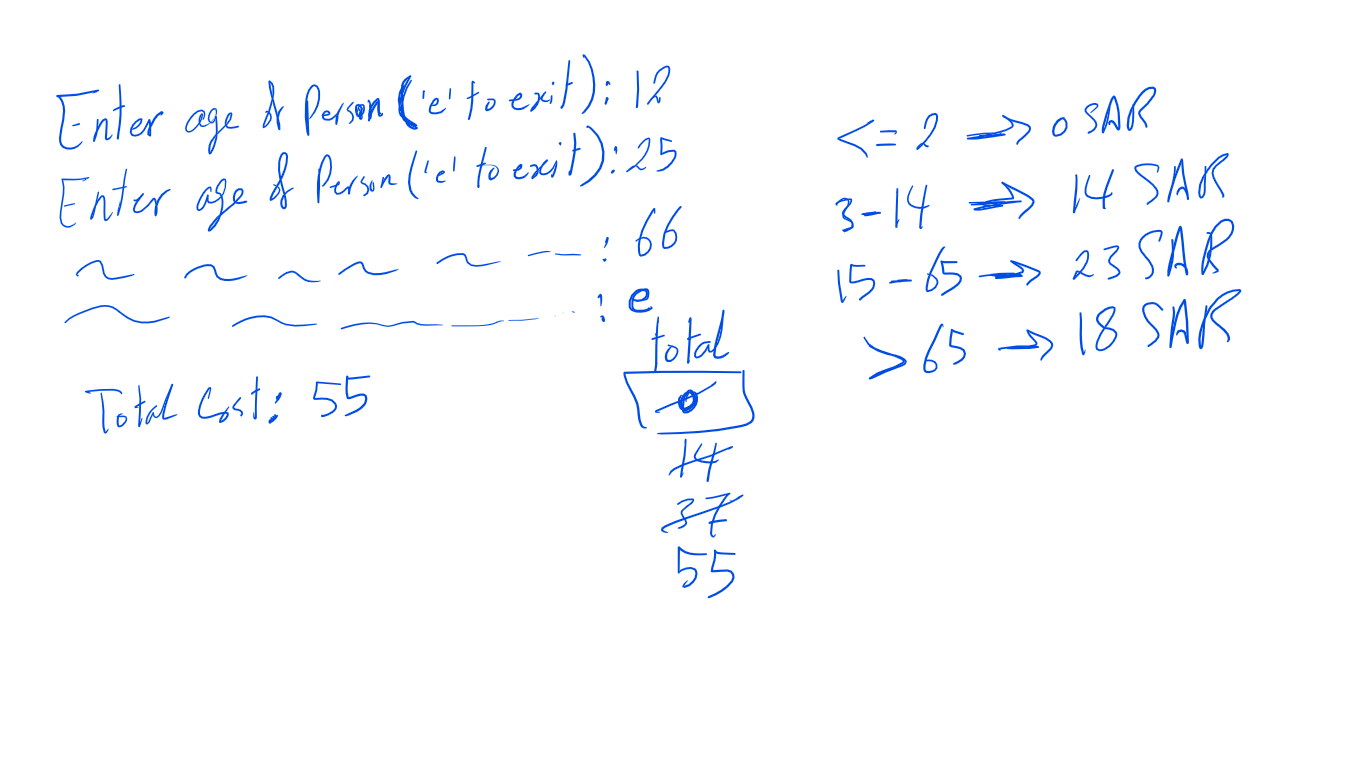 Enter age of Person ('e' to exit): 12
Enter age of Person ('e' to exit): 25
: 66
: e
Total Cost: 55
total
0
14
37
55
<= 2 → 0 SAR
3-14 → 14 SAR
15-65 → 23 SAR
> 65 → 18 SAR